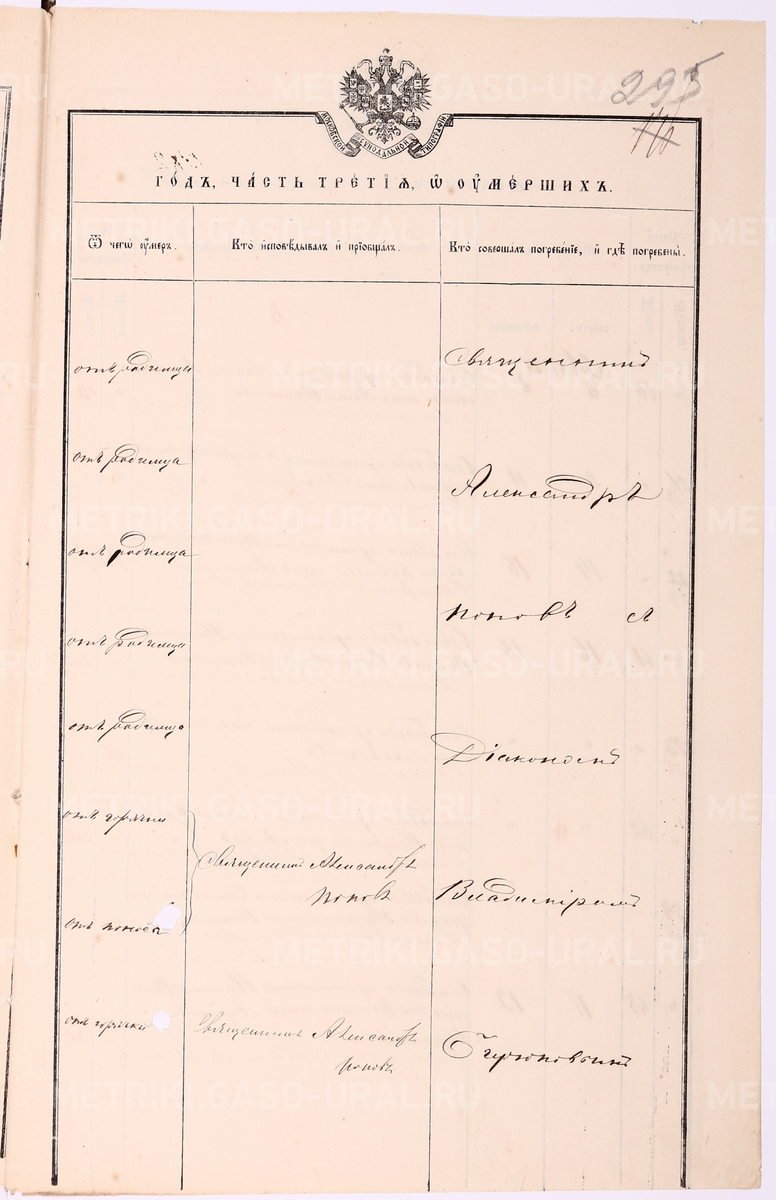 295
МОСКОВСКОЙ СѴНОДАЛЬНОЙ ТИПОГРАФІИ
ГОДЪ, ЧАСТЬ ТРЕТІЯ, Ѿ ОУМЕРШИХЪ.
Ѿ чегѡ оумеръ.
Кто исповѣдывалъ и пріобщалъ.
Кто совершалъ погребеніе, и гдѣ погребены.
отъ родимца
Священникъ
отъ родимца
Александръ
отъ родимца
Поповъ съ
отъ родимца
отъ родимца
Діакономъ
отъ горячки
Священникъ Александръ
Поповъ
Владиміромъ
отъ поноса
отъ горячки
Священникъ Александръ
Поповъ
METRIKI.GASO-URAL.RU